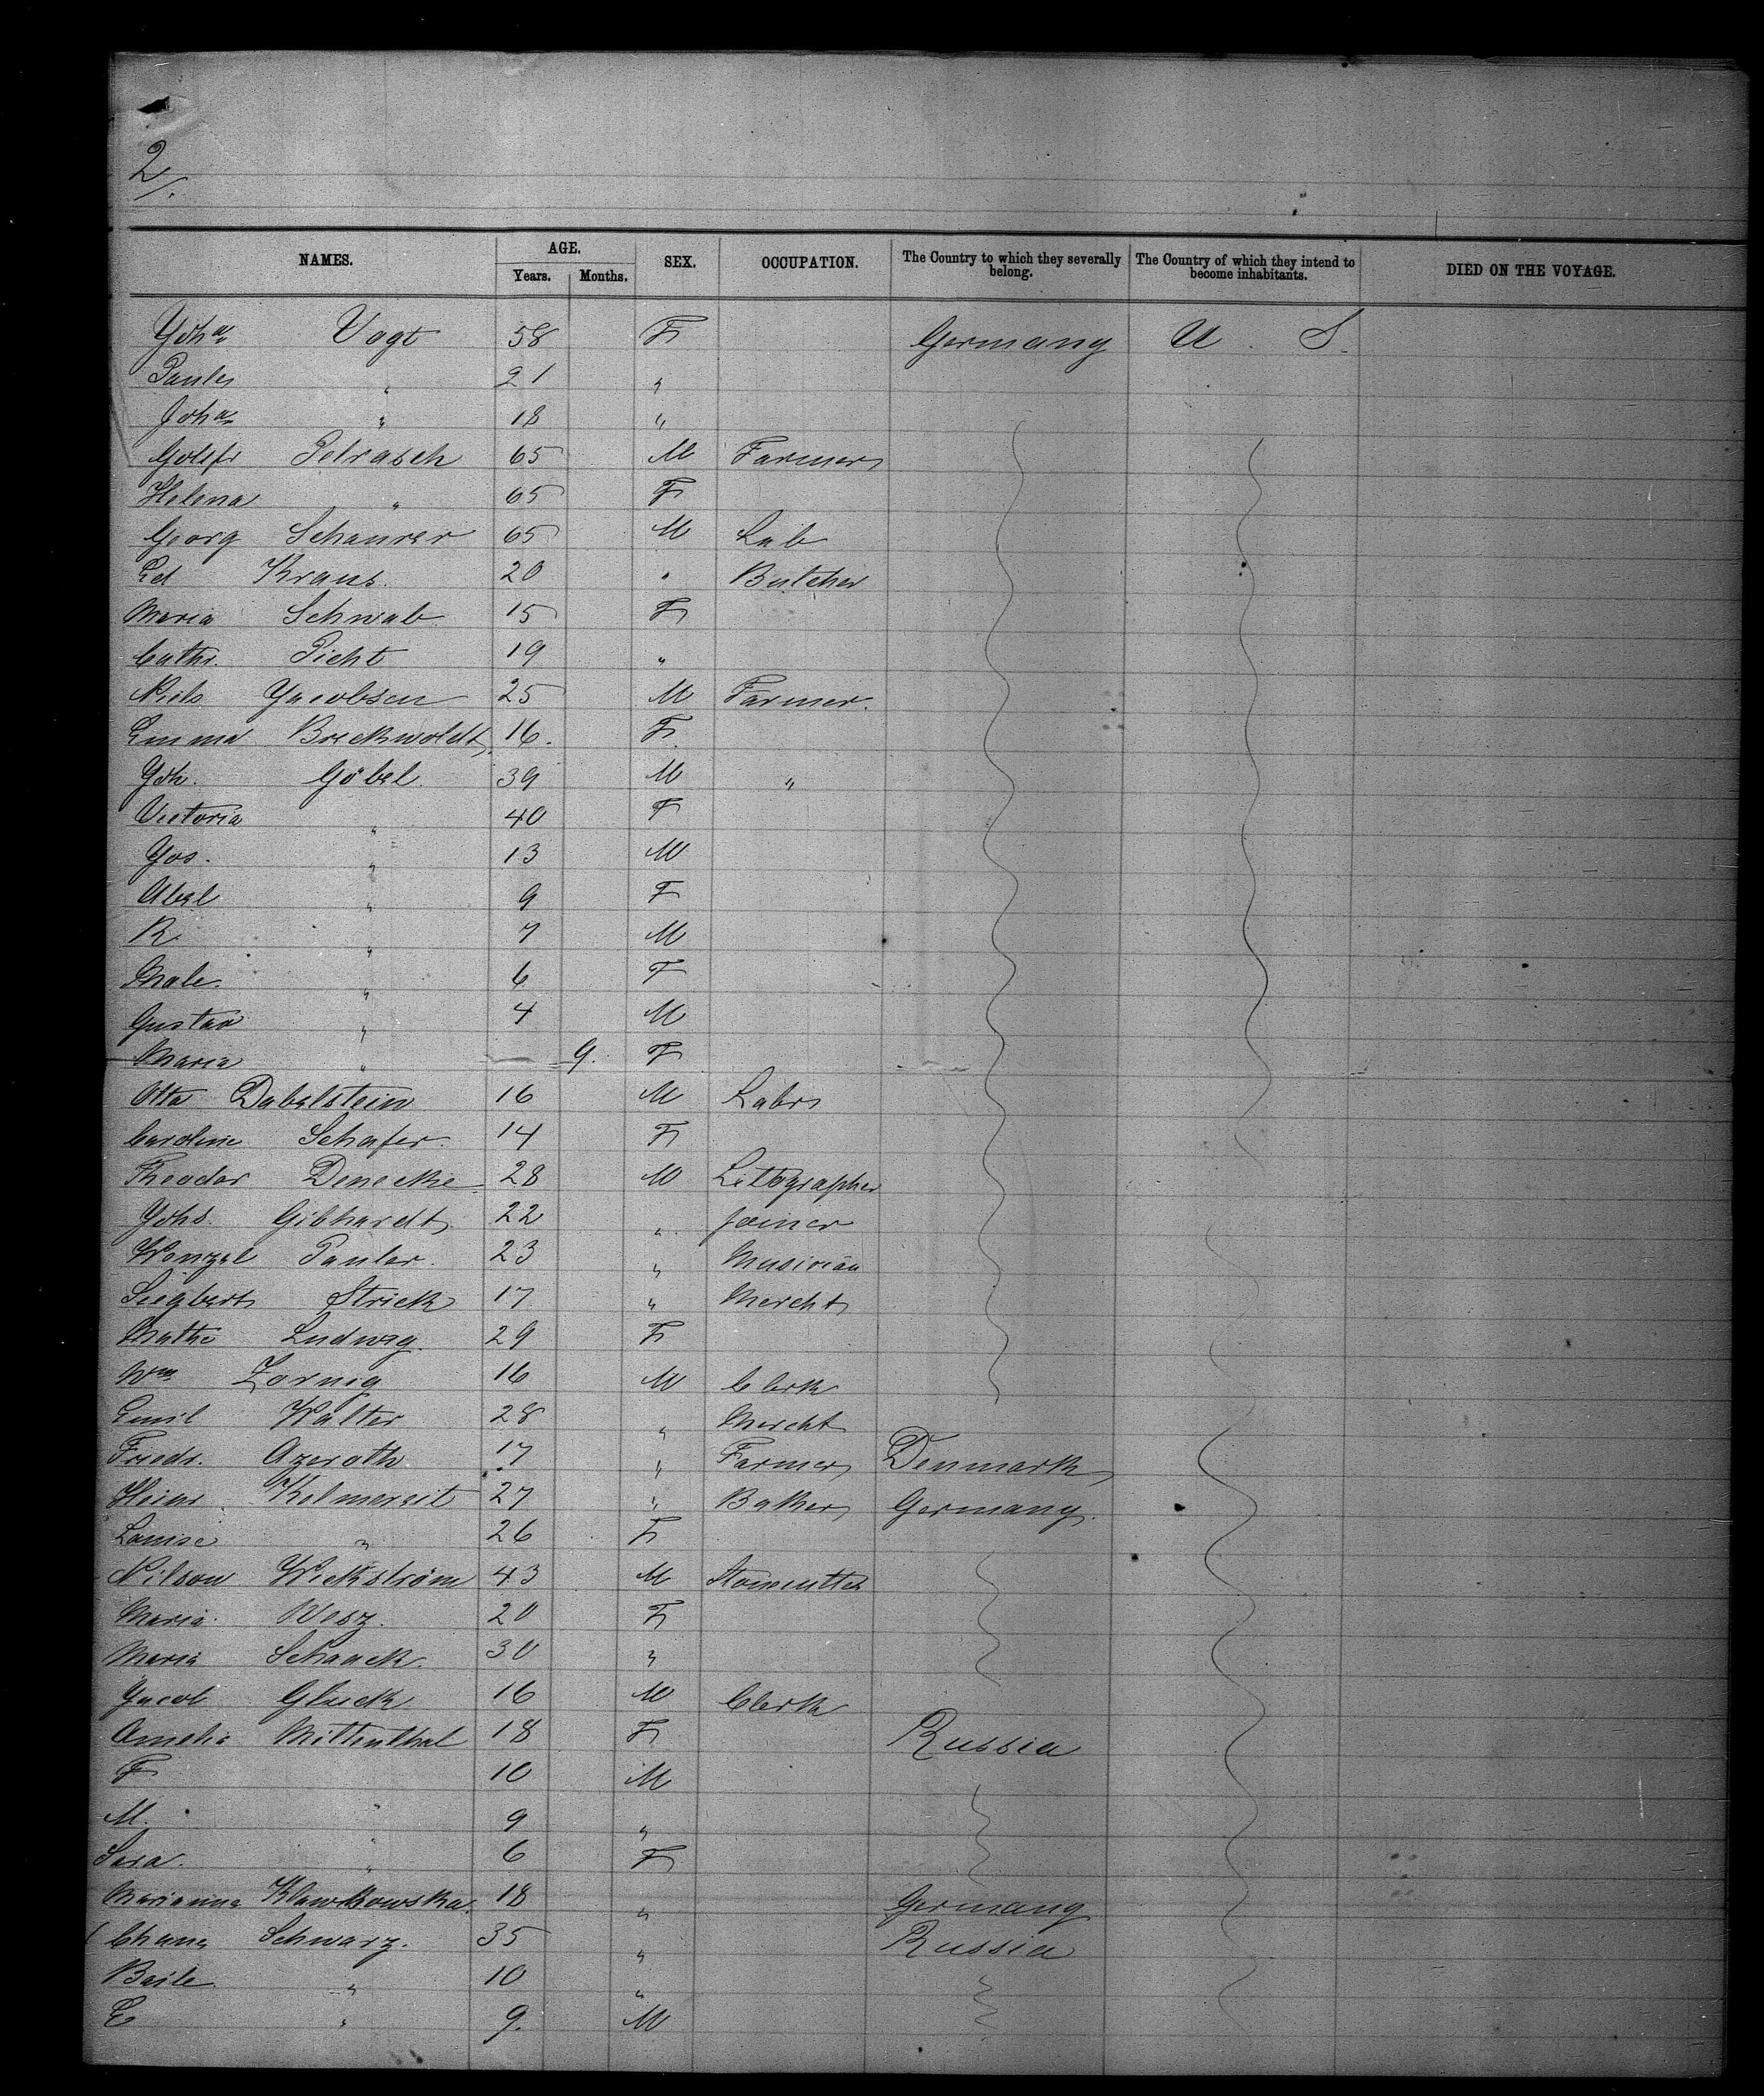 2/.
NAMES. AGE. Years. Months. SEX. OCCUPATION. The Country to which they severally belong. The Country of which they intend to become inhabitants. DIED ON THE VOYAGE.
Joha Vogt 58 F Germany U. S.
Paula " 21 "
Joha " 18 "
Gottfr Petrasch 65 M Farmer
Helena " 65 F
Georg Schaurer 65 M Lab
Ed Kraus. 20 " Butcher
Maria Schwab 15 F
Cathr. Picht 19 "
Niels Jacobsen 25 M Farmer.
Emma Breckwoldt 16. F
Joh. Göbel. 39 M "
Victoria " 40 F
Jos. " 13 M
Abel " 9 F
R. " 7 M
Male. " 6 F
Gustav " 4 M
Maria " — 9. F
Otto Dabelstein 16 M Labr
Caroline Schafer. 14 F
Theodor Denecke 28 M Litographer
Johs. Gibhardt 22 " Joiner
Wenzel Pauler. 23 " Musician
Siegbert Strick 17 " Mercht
Mathe Ludwig. 29 F
Wm Zornig 16 M Clerk
Emil Walter 28 " Mercht
Friedr. Azeroth 17 " Farmer Denmark
Heinr. Kolmorgit 27 " Baker Germany.
Louise " 26 F
Nilson Wickström 43 M
Maria. Wesz. 20 F
Maria Schaack. 30 "
Jacob Gluck 16 M Clerk
Amelia Mittenthal 18 F Russia
F " 10 M
M. " 9 "
Sara. " 6 F
Marianna Klawkowska. 18 " Germany
Chana Schwarz. 35 " Russia
Baile " 10 "
E " 9. M